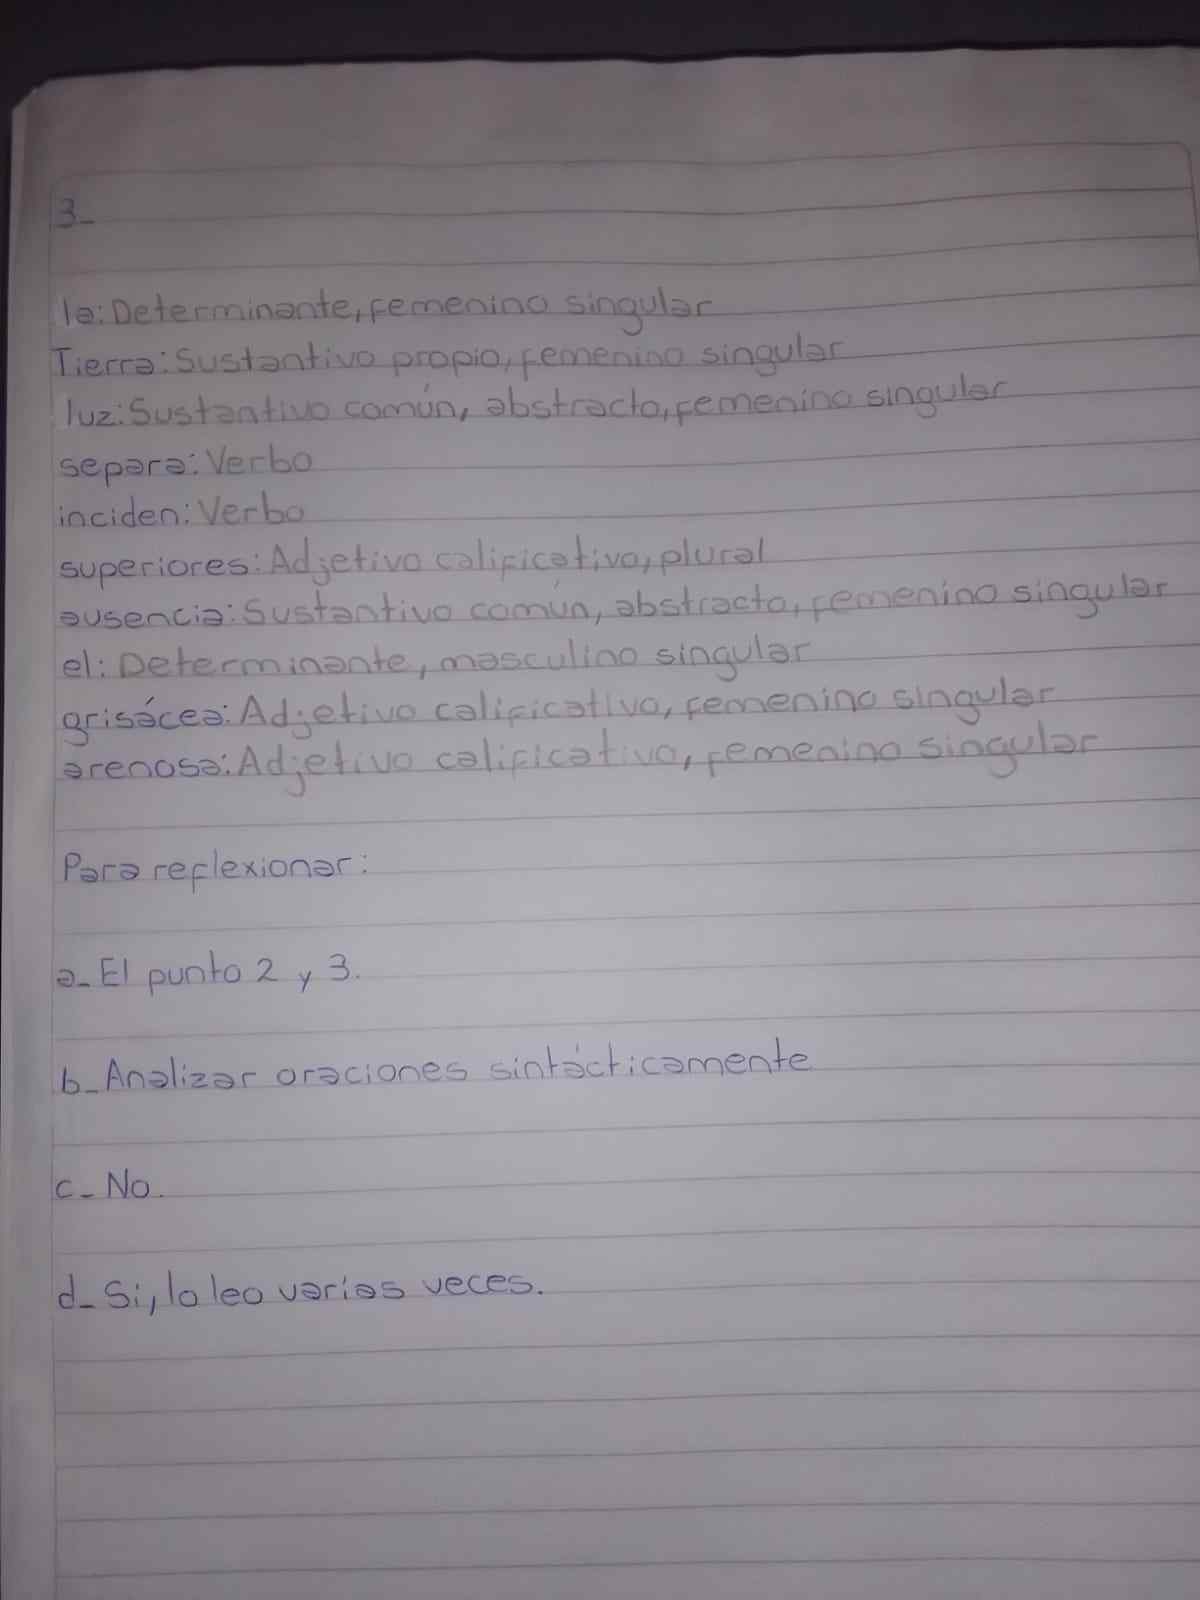 3_
la: Determinante, femenino singular
Tierra: Sustantivo propio, femenino singular
luz: Sustantivo común, abstracto, femenino singular
separa: Verbo
inciden: Verbo
superiores: Adjetivo calificativo, plural
ausencia: Sustantivo común, abstracto, femenino singular
el: Determinante, masculino singular
grisácea: Adjetivo calificativo, femenino singular
arenosa: Adjetivo calificativo, femenino singular
Para reflexionar:
a_ El punto 2 y 3.
b_ Analizar oraciones sintácticamente
c_ No.
d_ Si, lo leo varias veces.